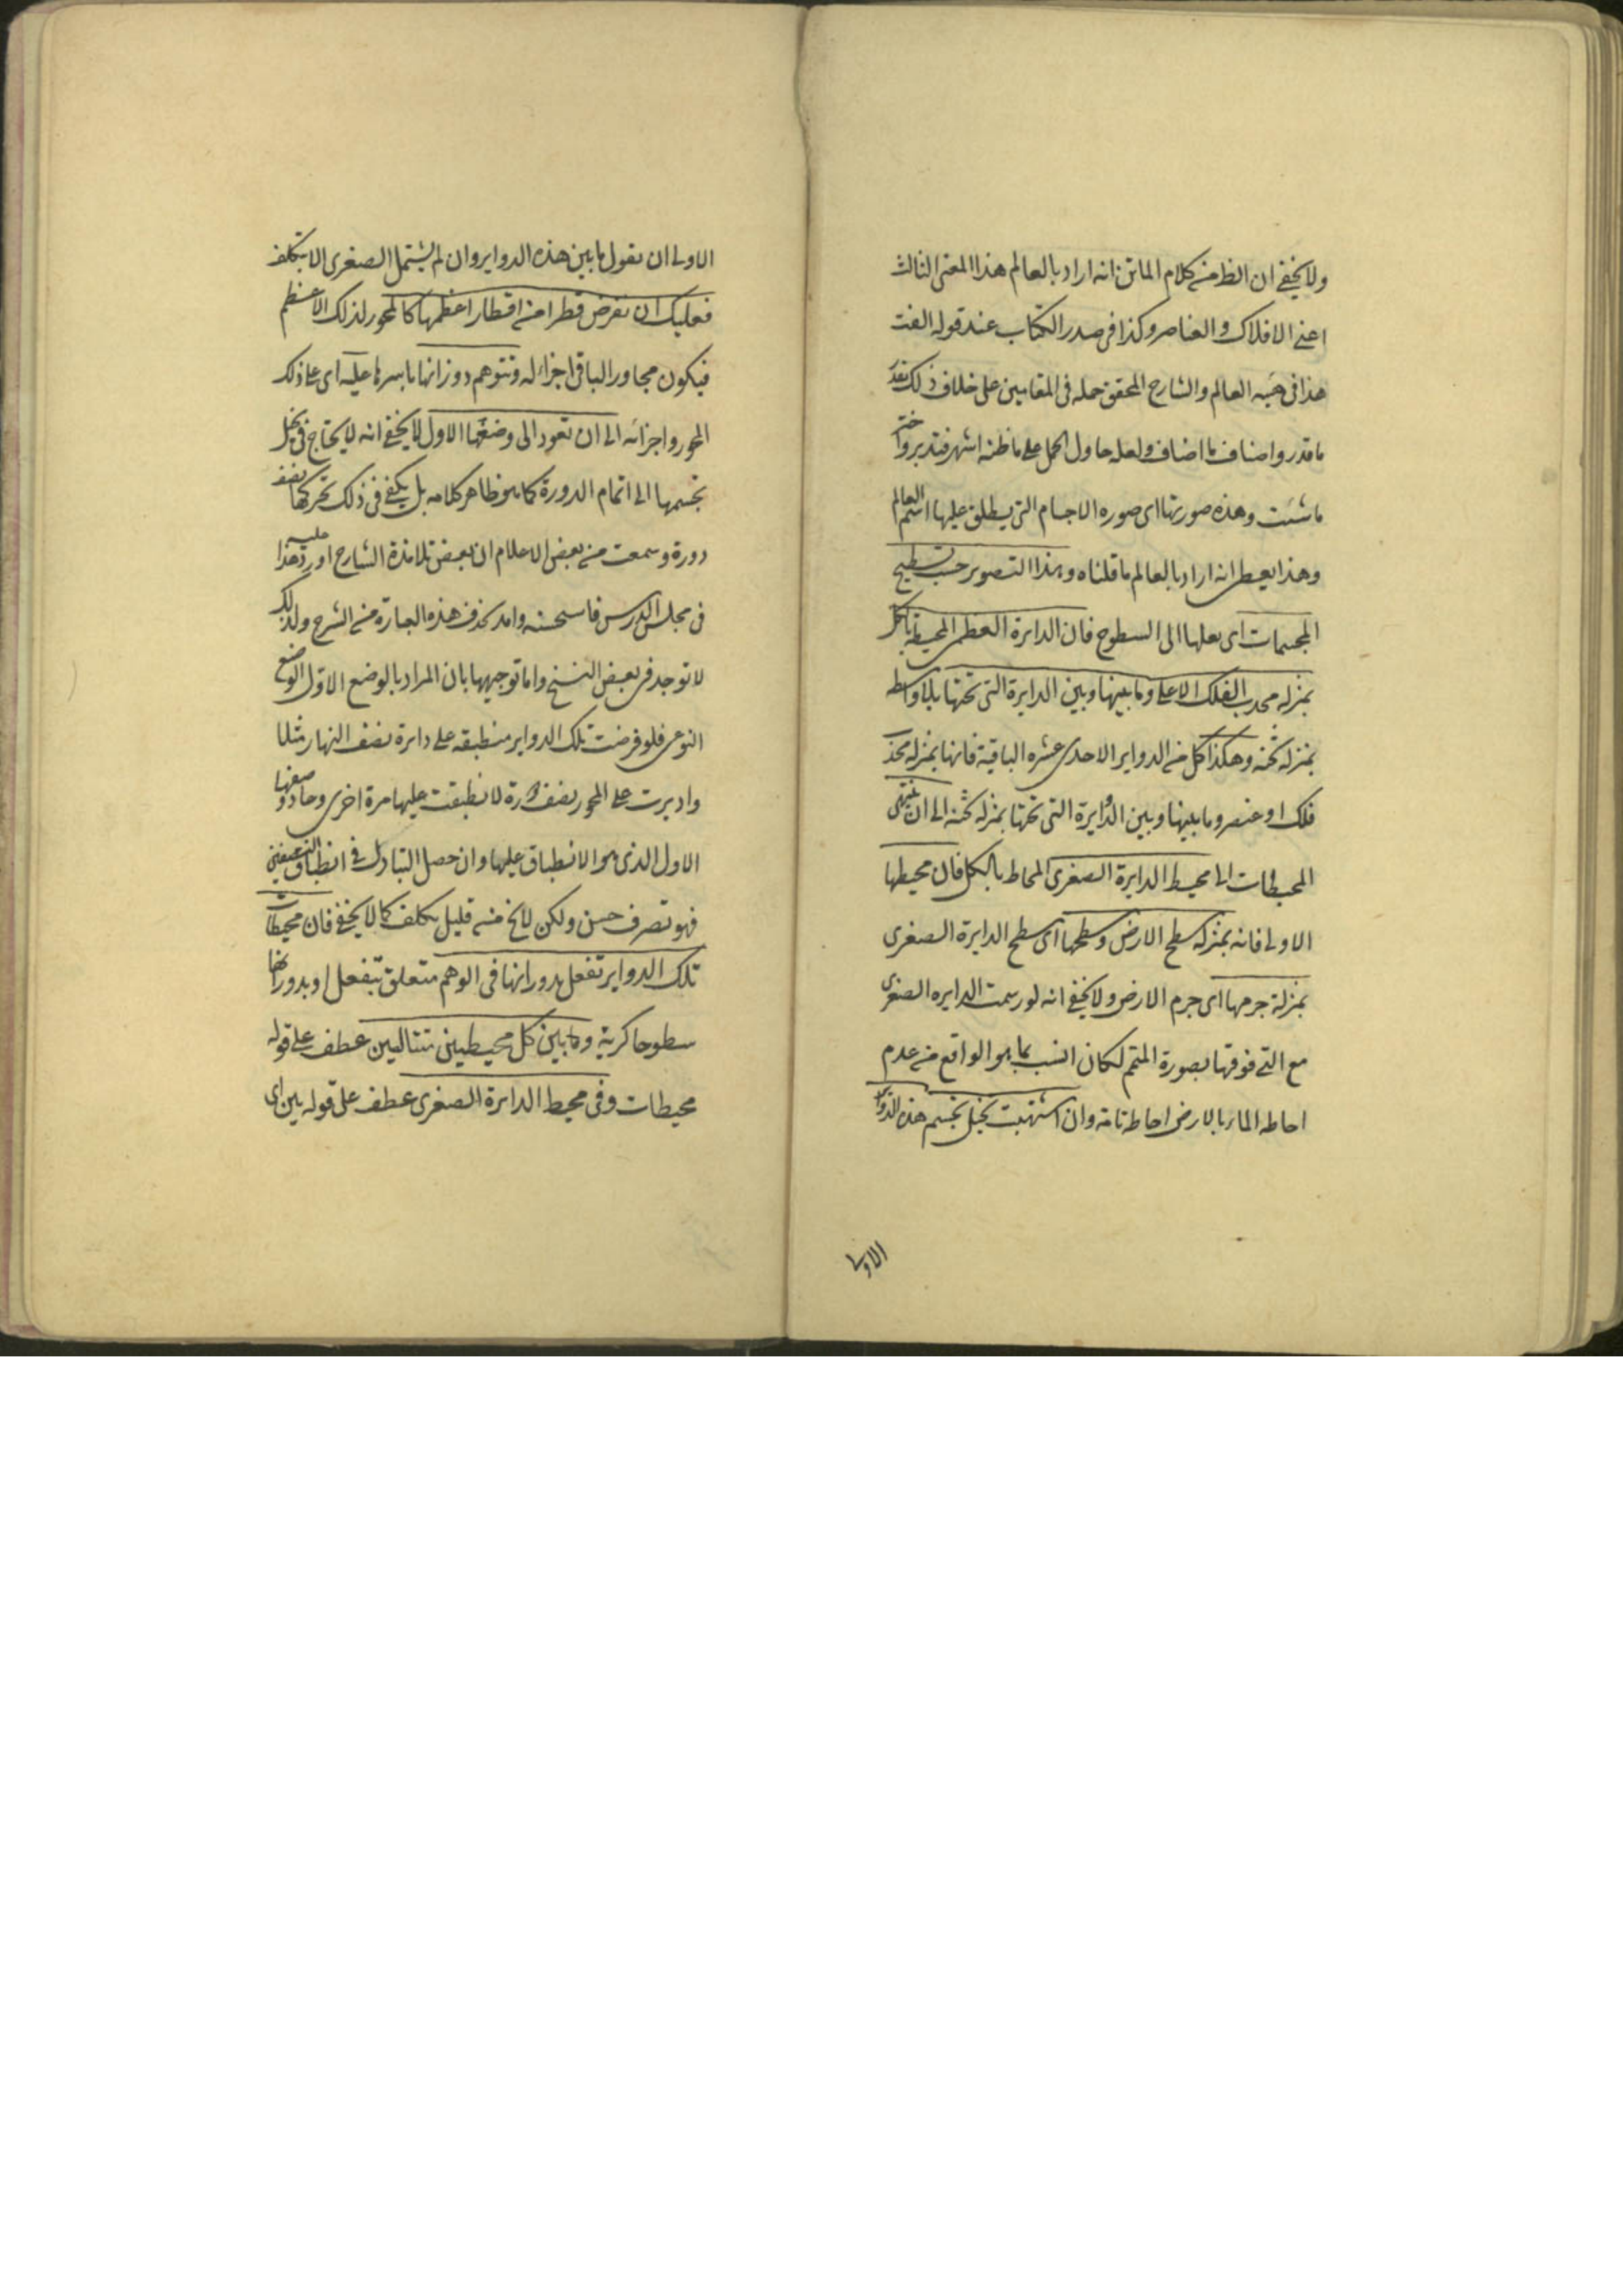 ولا يخفى ان الظ من كلام الماتن انه اراد بالعالم هذا المعنى الثالث
اعنى الافلاك والعناصر وكذا فى صدر الكتاب عند قوله الفت
هذا فى هيئه العالم والشارح المحقق حمله فى المقامين على خلاف ذلك فقدر
ما قدر واضاف ما اضاف ولعله حاول الحمل على ما ظنه اشهر فتدبر واختر
ما شئت وهذه صورتها اى صوره الاجسام التى يطلق عليها اسم العالم
وهذا يعطى انه اراد بالعالم ما قلناه وهذا التصوير حسب تسطيح
المجسمات اى نقلها الى السطوح فان الدايرة العظمى المحيطة بالكل
بمنزله محدب الفلك الاعلى وما بينها وبين الدايرة التى تحتها بلا واسطه
بمنزله ثخنه وهكذا كل من الدواير الاحدى عشره الباقية فانها بمنزله محدب
فلك او عنصر وما بينها وبين الدايرة التى تحتها بمنزله ثخنه الى ان ينتهى
المحيطات الى محيط الدايرة الصغرى المحاط بالكل فان محيطها
الاولى فانه بمنزله سطح الارض وسطحها اى سطح الدايرة الصغرى
بمنزلة جرمها اى جرم الارض ولا يخفى انه لو رسمت الدايره الصغرى
مع التى فوقها بصورة المتمم لكان انسب بما هو الواقع من عدم
احاطه الماء بالارض احاطه تامه وان اشتهيت تخيل تجسم هذه الدواير
الاولى
الاولى ان نقول ما بين هذه الدواير وان لم يشتمل الصغرى الا بتكلف
فعليك ان تفرض قطرا من اقطار اعظمها كالمحور لذلك الاعظم
فيكون مجاور الباقى اجزاء له وتتوهم دورانها باسرها عليه اى على ذلك
المحور واجزائه الى ان تعود الى وضعها الاول لا يخفى انه لا يحتاج فى تخيل
تجسمها الى اتمام الدورة كما هو ظاهر كلامه بل يكفى فى ذلك تحركها نصف
دورة وسمعت من بعض الاعلام ان بعض تلامذة الشارح اورد عليه هذا
فى مجلس الدرس فاستحسنه وامر بحذف هذه العبارة من الشرح ولذلك
لا توجد فى بعض النسخ واما توجيهها بان المراد بالوضع الاول الوضع
النوعى فلو فرضت تلك الدواير منطبقه على دائرة نصف النهار مثلا
واديرت على المحور نصف دورة لانطبقت عليها مرة اخرى وعاد وضعها
الاول الذى هو الانطباق عليها وان حصل التبادل فى انطباق النصفين
فهو تصرف حسن ولكن لا يخ من قليل تكلف كما لا يخفى فان محيطات
تلك الدواير تفعل بدورانها فى الوهم متعلق بتفعل او بدورانها
سطوحا كرية وما بين كل محيطين متتاليين عطف على قوله
محيطات وفى محيط الدايرة الصغرى عطف على قوله بين اى